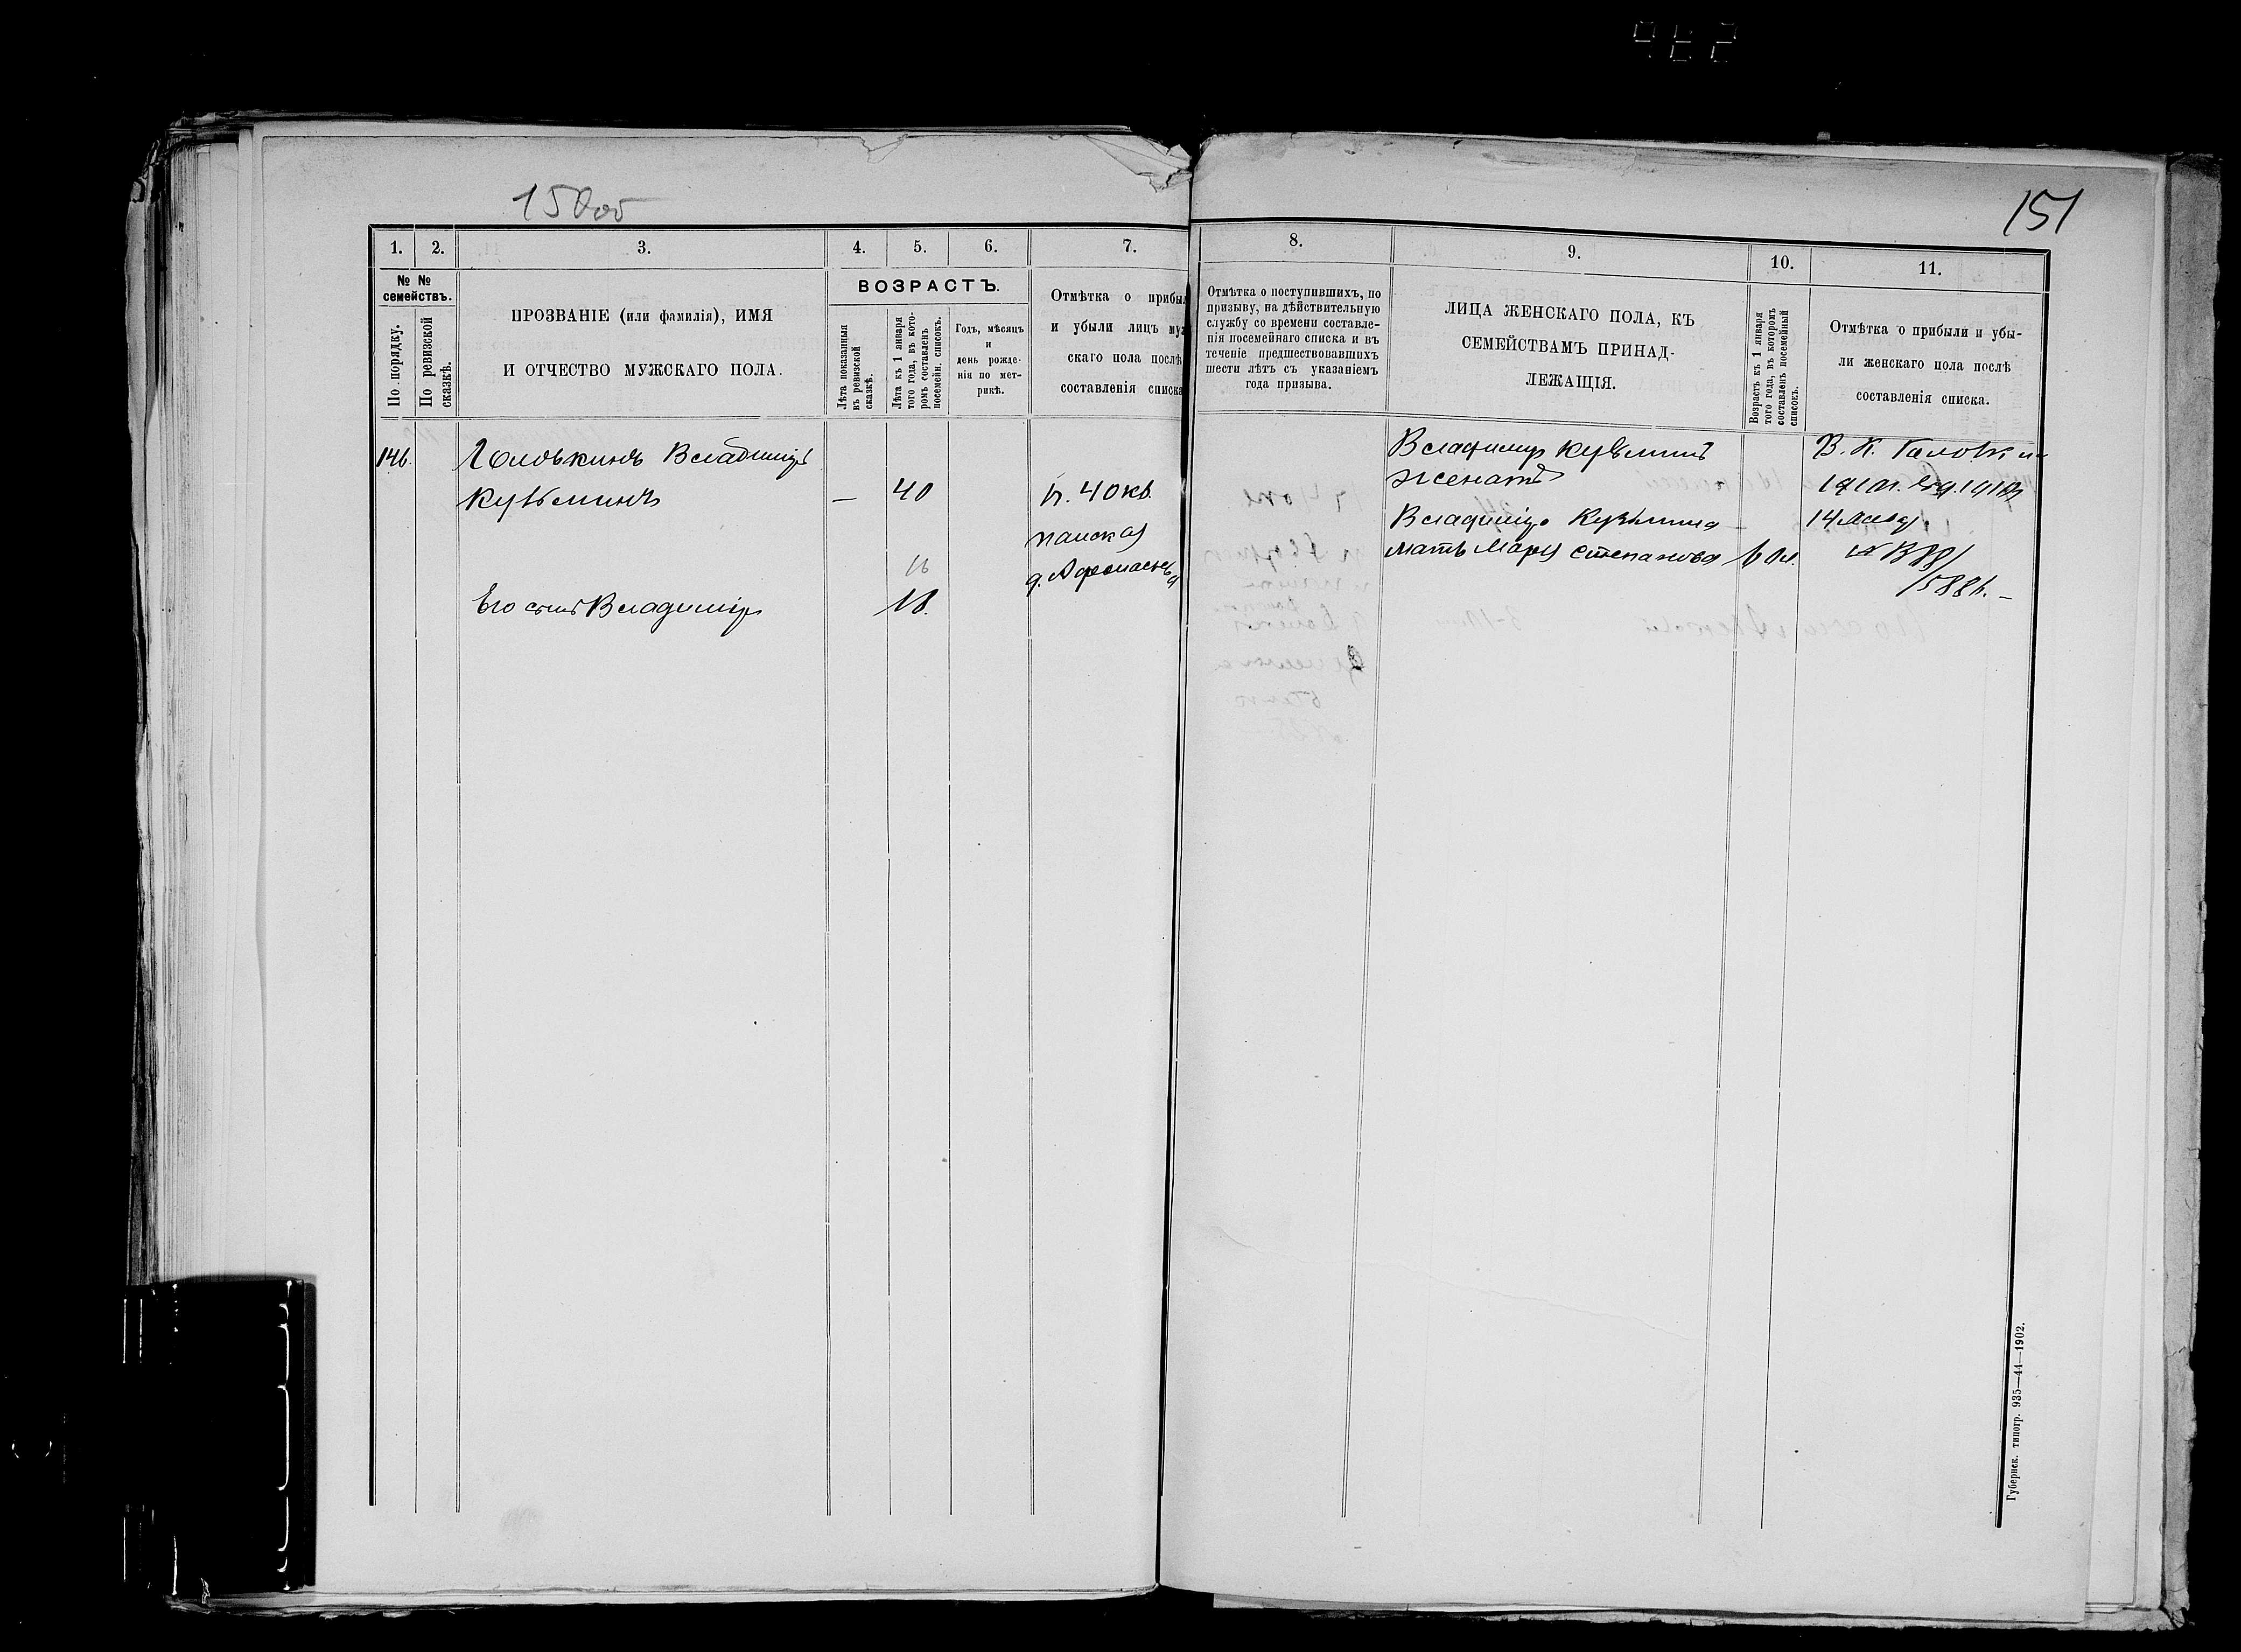 150об
151
1.
2.
3.
4.
5.
6.
7.
8.
9.
10.
11.
№ №
семействъ.
По порядку.
По ревизской
сказкѣ.
ПРОЗВАНІЕ (или фамилія), ИМЯ
И ОТЧЕСТВО МУЖСКАГО ПОЛА.
ВОЗРАСТЪ.
Лѣта показанныя
въ ревизской
сказкѣ.
Лѣта къ 1 января
того года, въ кото-
ромъ составленъ
посемейн. списокъ.
Годъ, мѣсяцъ
и
день рожде-
нія по мет-
рикѣ.
Отмѣтка о прибы
и убыли лицъ му
скаго пола послѣ
составленія списка
Отмѣтка о поступившихъ, по
призыву, на дѣйствительную
службу со времени составле-
нія посемейнаго списка и въ
теченіе предшествовавшихъ
шести лѣтъ съ указаніемъ
года призыва.
ЛИЦА ЖЕНСКАГО ПОЛА, КЪ
СЕМЕЙСТВАМЪ ПРИНАД-
ЛЕЖАЩІЯ.
Возрастъ къ 1 января
того года, въ которомъ
составленъ посемейный
списокъ.
Отмѣтка о прибыли и убы-
ли женскаго пола послѣ
составленія списка.
146.
Головкинъ Владиміръ
Кузьминъ
—
40
п. 40 кв.
д. Афонасьева
16
Его сынъ Владиміръ
18.
Владимир Кузьминъ
женатъ
Владиміра Кузьмина
мать Марія Степанова
60 л.
В. К. Головкин
14
15886. —
Губернск. типогр. 935—44—1902.